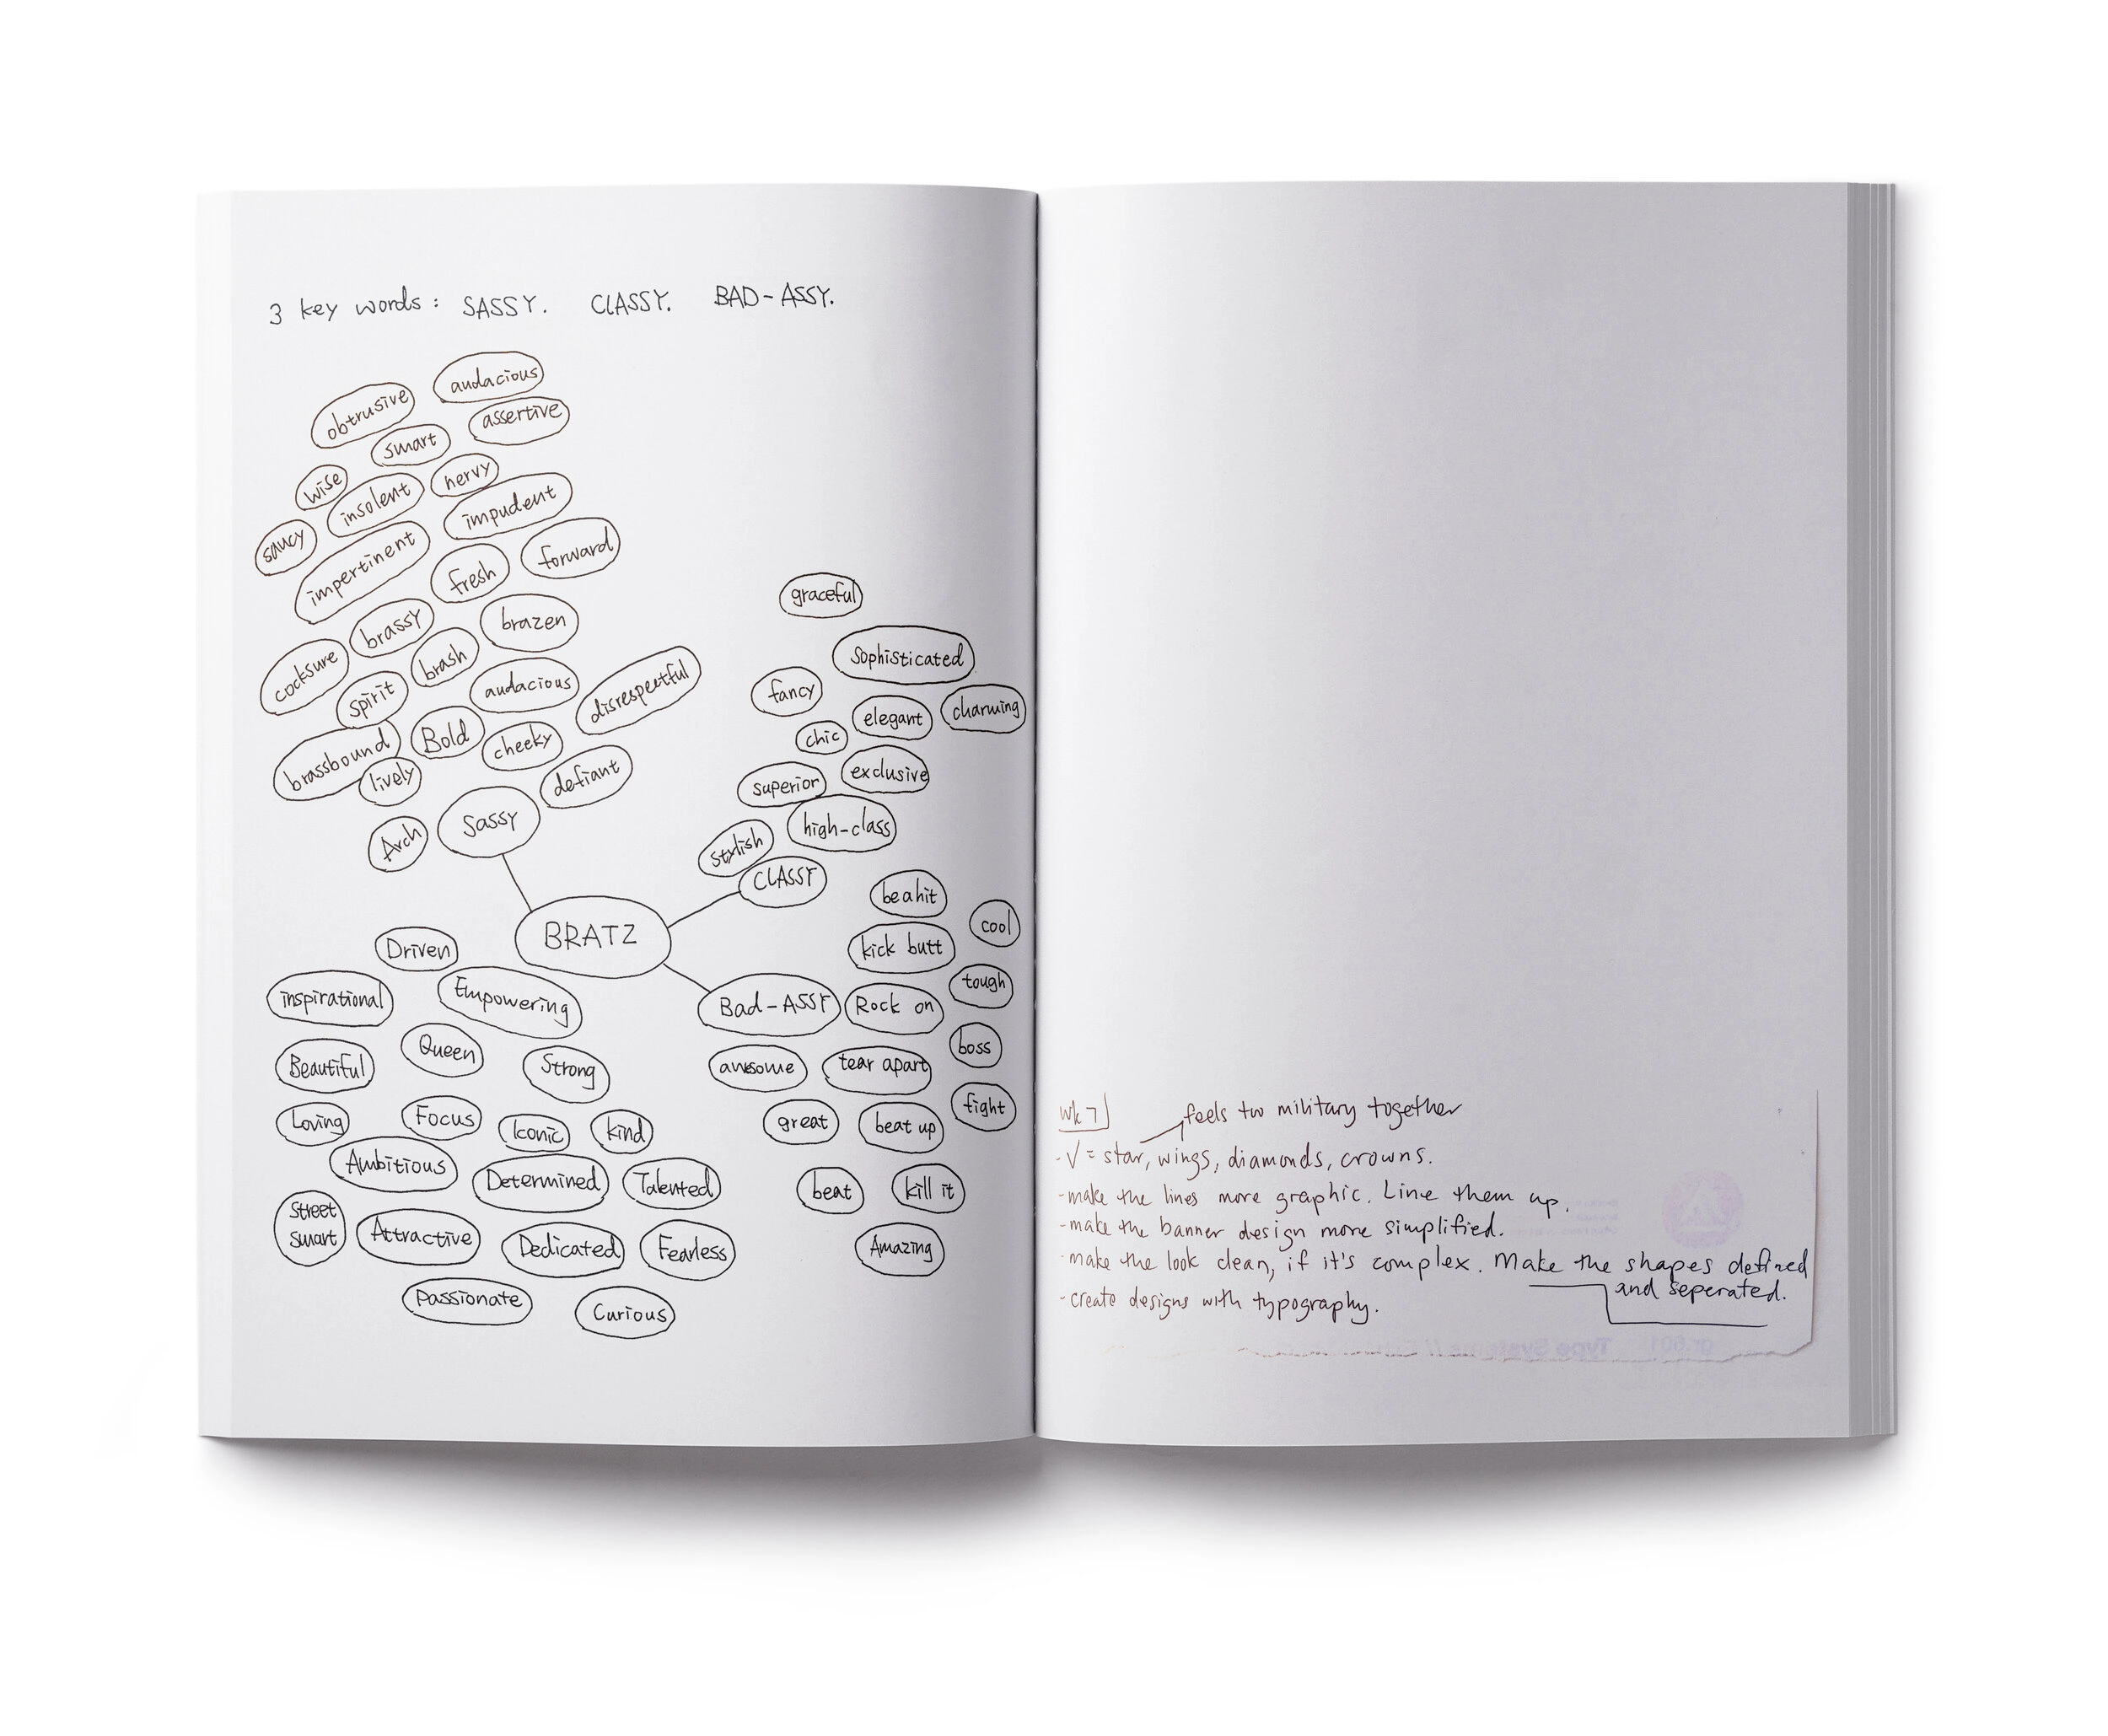 3 key words: SASSY. CLASSY. BAD-ASSY.
audacious
obtrusive
assertive
smart
nervy
wise
insolent
impudent
saucy
impertinent
fresh
forward
brassy
brazen
cocksure
brash
spirit
audacious
disrespectful
brassbound
Bold
cheeky
lively
defiant
Arch
Sassy
graceful
sophisticated
fancy
elegant
charming
chic
superior
exclusive
high-class
stylish
CLASSY
BRATZ
be a hit
cool
kick butt
tough
Bad-ASSY
Rock on
boss
awesome
tear apart
fight
great
beat up
beat
kill it
Amazing
Driven
inspirational
Empowering
Queen
Beautiful
Strong
Loving
Focus
Iconic
kind
Ambitious
Determined
Talented
Street
smart
Attractive
Dedicated
Fearless
Passionate
Curious
wk 7
feels too military together
- √ = star, wings, diamonds, crowns.
- make the lines more graphic. Line them up.
- make the banner design more simplified.
- make the look clean, if it's complex. Make the shapes defined
and seperated.
- create designs with typography.
gr.601 Type Systems //